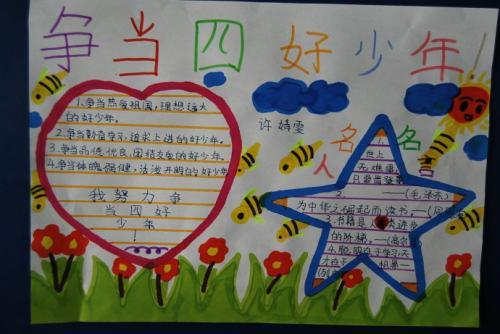 争当四好少年!
许婧雯
1.争当热爱祖国,理想远大
的好少年。
2.争当勤奋学习,追求上进的好少年。
3.争当品德优良,团结友爱的好少年。
4.争当体魄强健,活泼开朗的好少年
我努力争
当四好
少年
!
名人名言
1.
世上
无难事
(毛泽东)
2.
为中华之崛起而读书。
3.书籍是人类进步
的阶梯。—(高尔基)
4.聪明在于学习,天
才在于